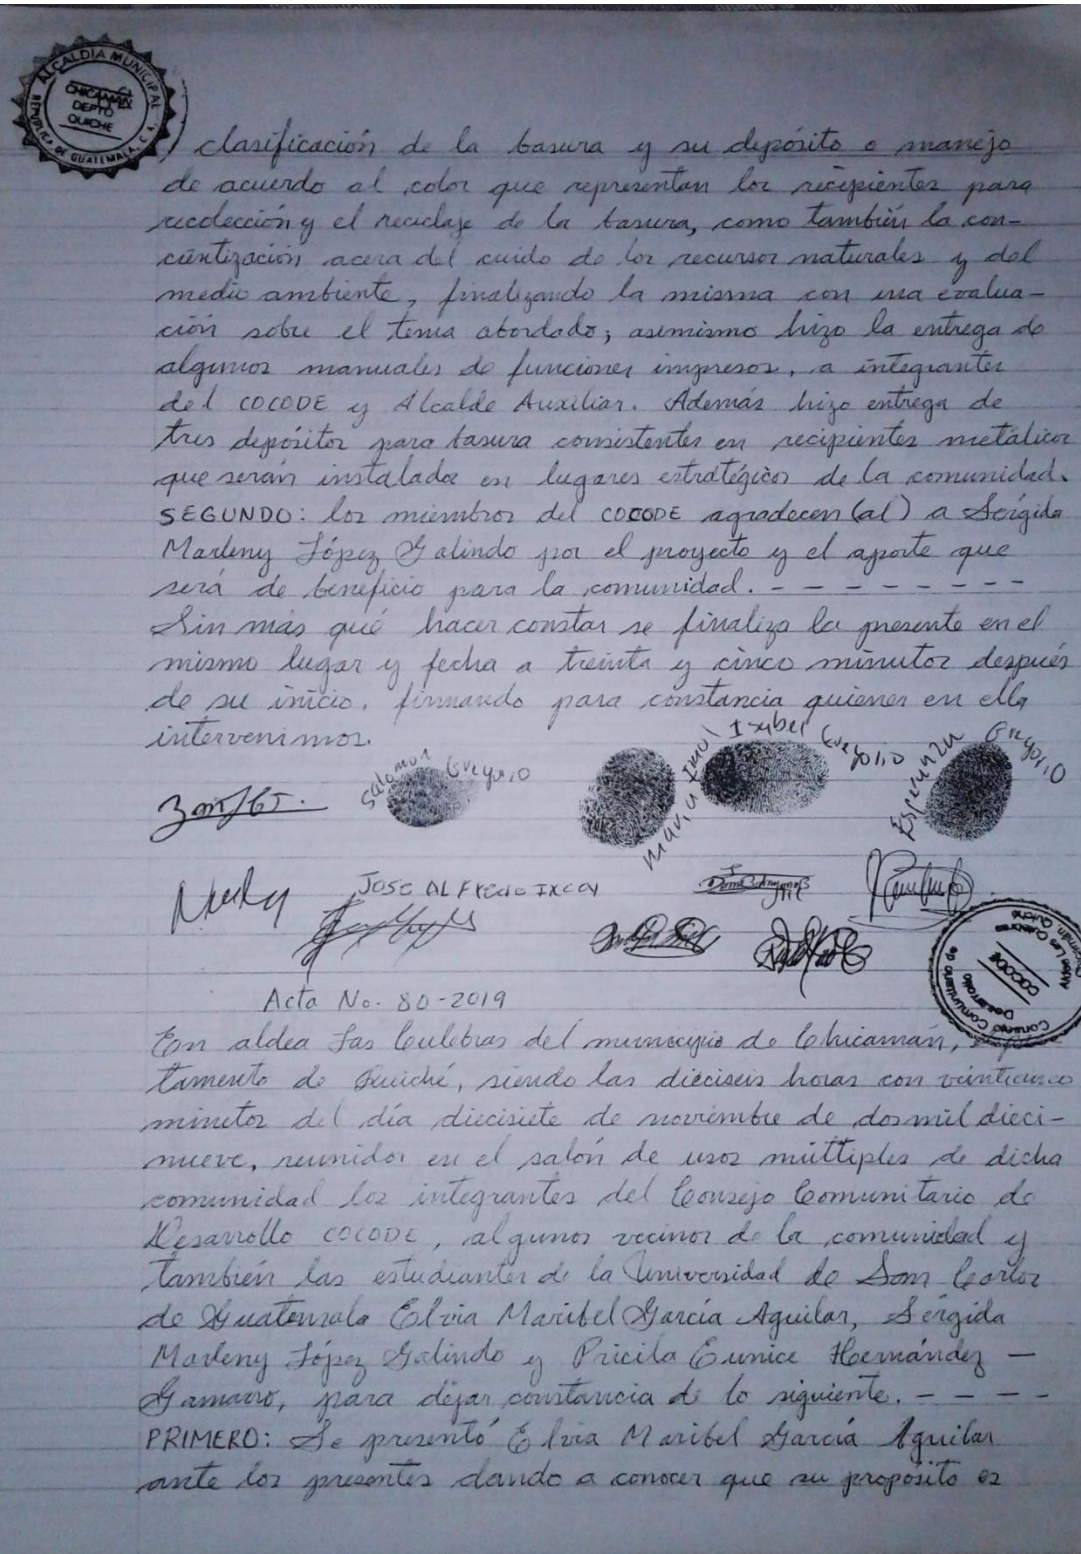 ALCALDIA MUNICIPAL
CHICAMAN
DEPTO
QUICHE
REPUBLICA DE GUATEMALA, C. A.
clasificación de la basura y su depósito o manejo
de acuerdo al color que representan los recipientes para
recolección y el reciclaje de la basura, como también la con-
cientización acera del cuido de los recursos naturales y del
medio ambiente, finalizando la misma con una evalua-
ción sobre el tema abordado; asimismo hizo la entrega de
algunos manuales de funciones impresos, a integrantes
del COCODE y Alcalde Auxiliar. Además hizo entrega de
tres depósitos para basura consistentes en recipientes metálicos
que serán instalados en lugares estratégicos de la comunidad.
SEGUNDO: los miembros del COCODE agradecen (al) a Sérgida
Marleny López Galindo por el proyecto y el aporte que
será de beneficio para la comunidad. - - - - - - -
Sin más qué hacer constar se finaliza la presente en el
mismo lugar y fecha a treinta y cinco minutos después
de su inicio, firmando para constancia quienes en ella
intervenimos.
Salomon Gregorio
Maria Imul
Isabel Gregorio
Esperanza Gregorio
JOSE ALFREDO IXCOY
Consejo Comunitario de
Desarrollo
COCODE
Aldea Las Culebras
Chicamán, Quiché
Acta No. 80-2019
En aldea Las Culebras del municipio de Chicamán,
tamento de Quiché, siendo las dieciseis horas con veinticinco
minutos del día diecisiete de noviembre de dos mil dieci-
nueve, reunidos en el salón de usos múltiples de dicha
comunidad los integrantes del Consejo Comunitario de
Desarrollo COCODE, algunos vecinos de la comunidad y
también las estudiantes de la Universidad de San Carlos
de Guatemala Elvia Maribel García Aguilar, Sérgida
Marleny López Galindo y Pricila Eunice Hernández —
Gamarro, para dejar constancia de lo siguiente. - - - -
PRIMERO: Se presentó Elvia Maribel García Aguilar
ante los presentes dando a conocer que su propósito es